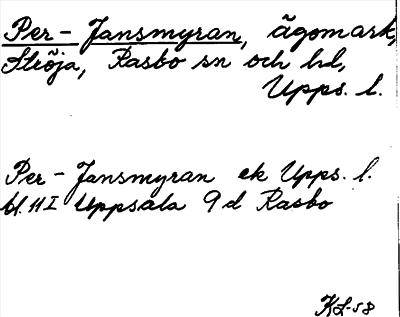 Per-Jansmyran, ägomark,
Ströja, Rasbo sn och hd,
Upps. l.
Per-Jansmyran ek Upps. l.
bl. 11 I Uppsala 9d Rasbo
KL-58